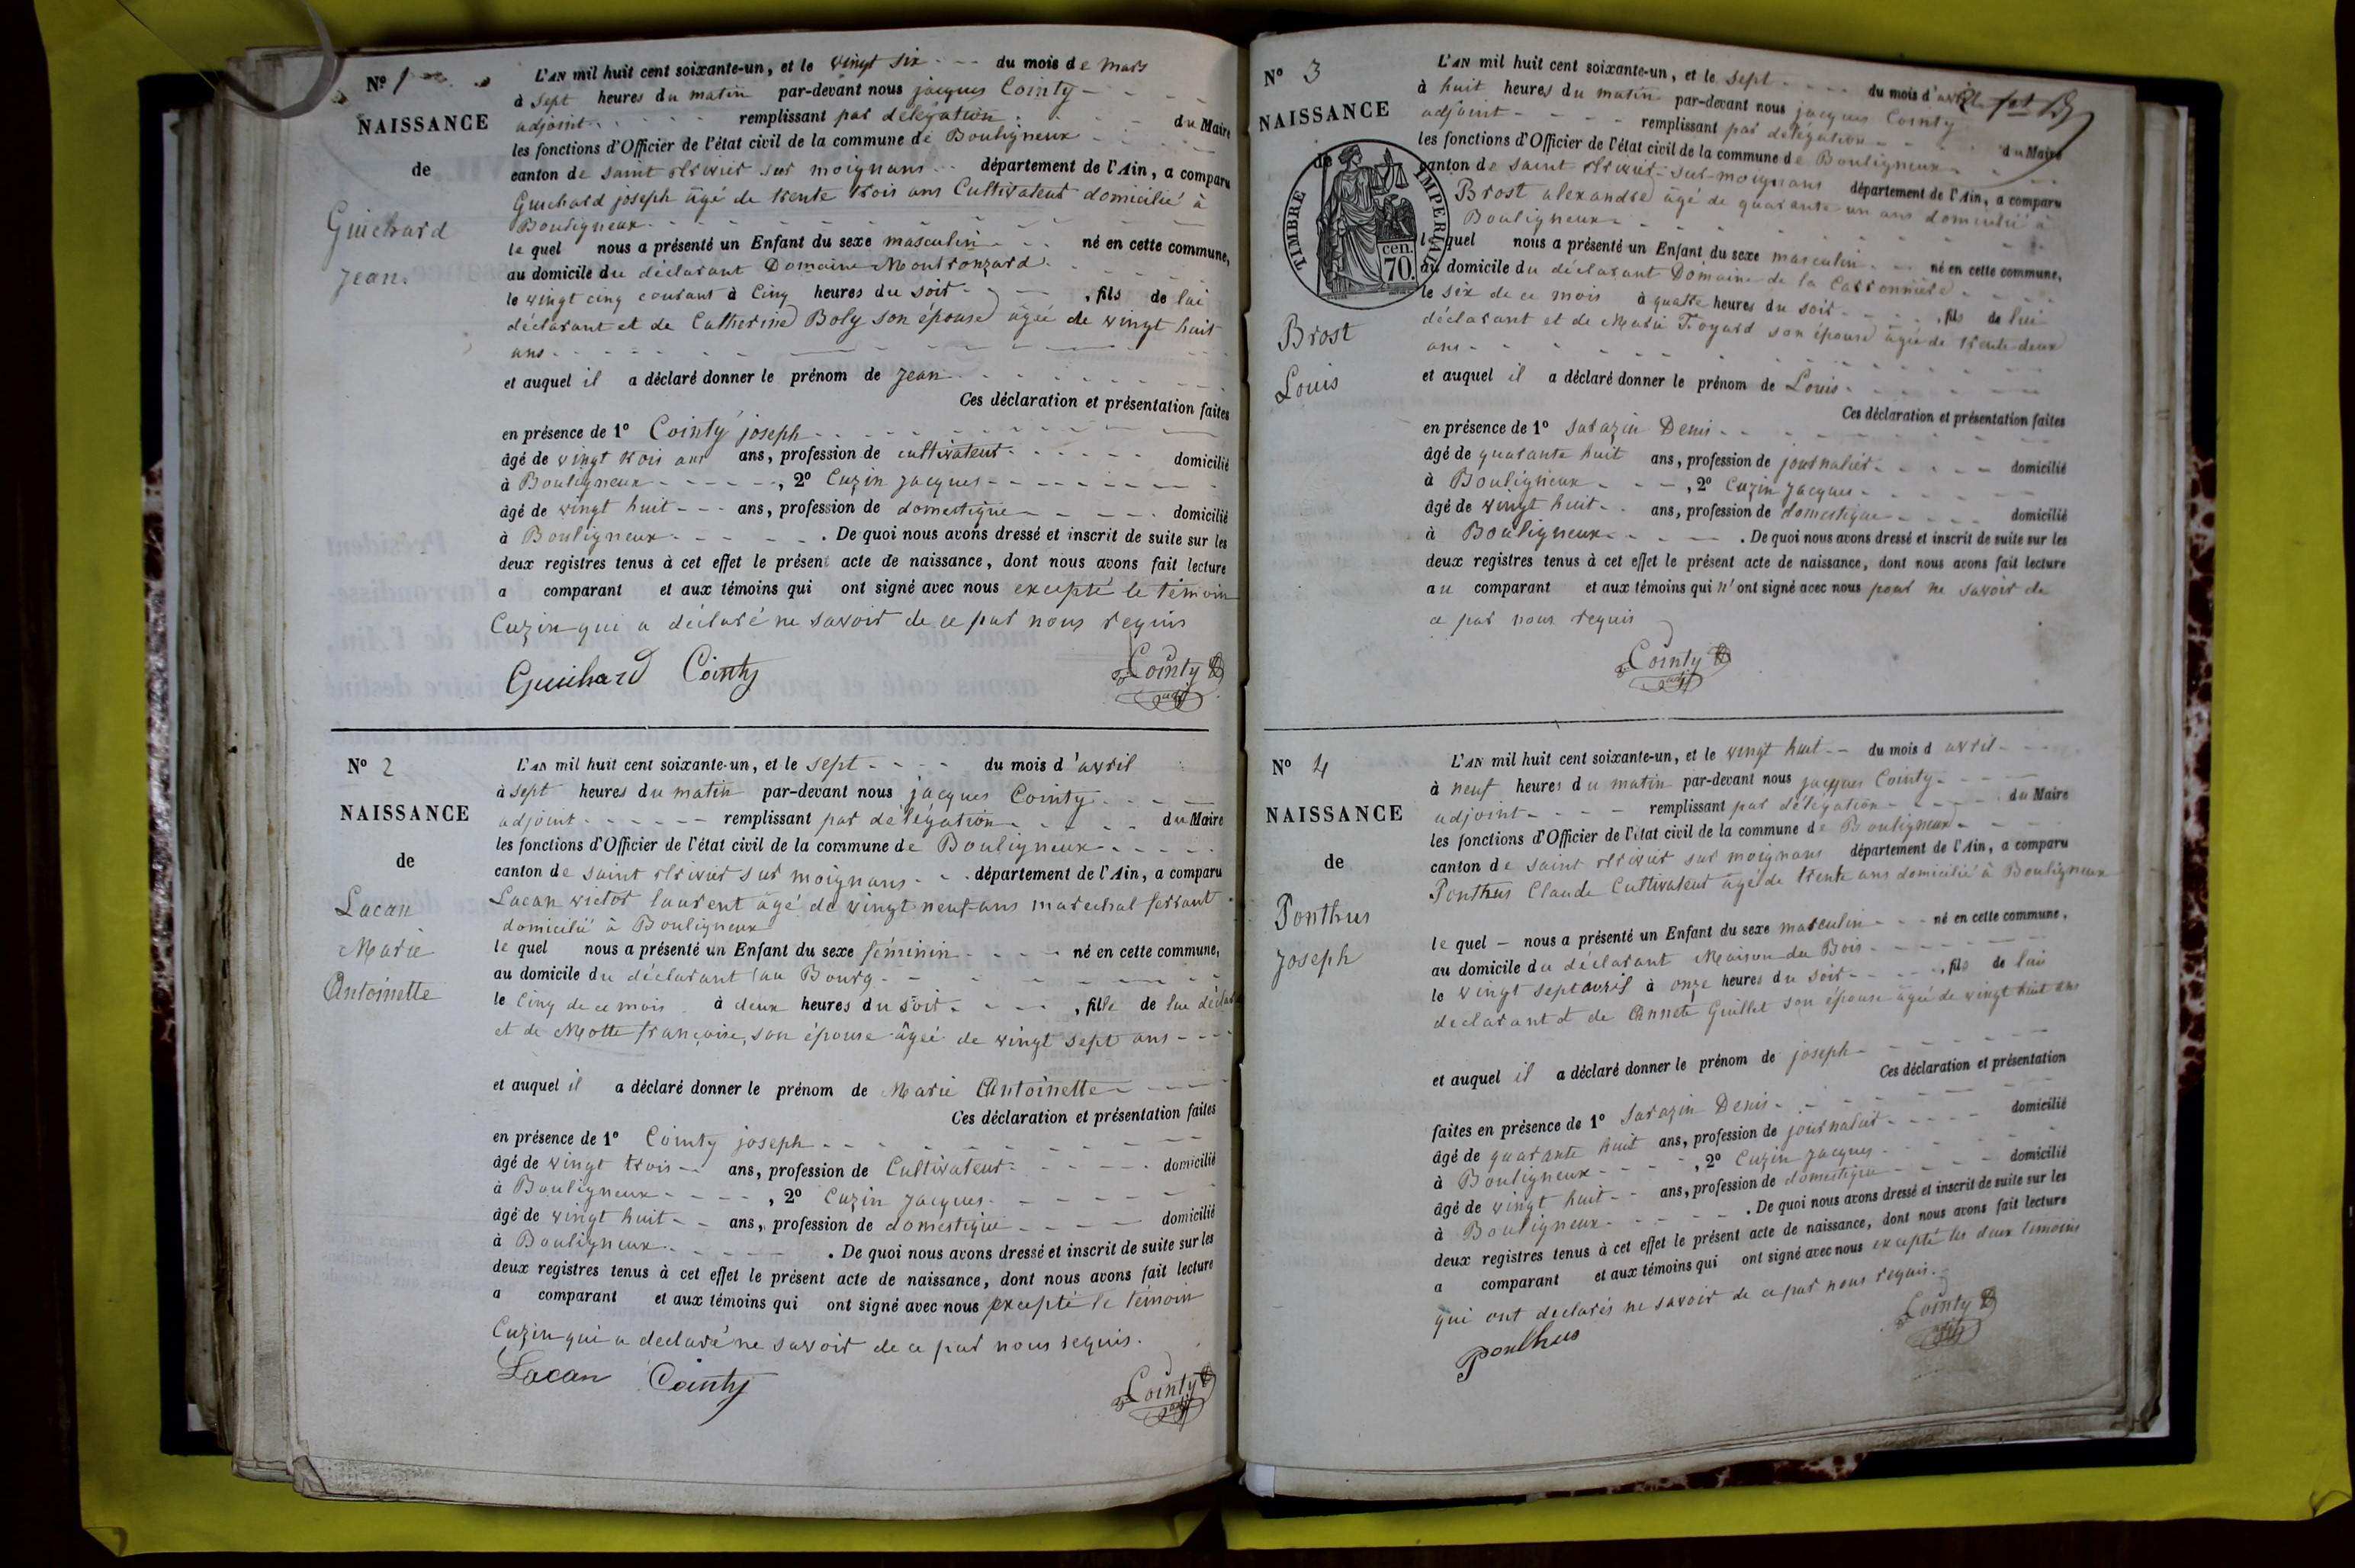 N° 1
NAISSANCE
de
Guichard
Jean.
L'AN mil huit cent soixante-un, et le vingt six du mois de mars
à sept heures du matin par-devant nous jacques Cointy
adjoint remplissant par délégation du Maire
les fonctions d'Officier de l'état civil de la commune de Bouligneux
canton de saint trivier sur moignans département de l'Ain, a comparu
Guichard joseph âgé de trente trois ans Cultivateur domicilié à
Bouligneux
le quel nous a présenté un Enfant du sexe masculin né en cette commune,
au domicile du déclarant Domaine Montronzard
le vingt cinq courant à Cinq heures du soir , fils de lui
déclarant et de Catherine Boly son épouse âgée de vingt huit
ans
et auquel il a déclaré donner le prénom de Jean
Ces déclaration et présentation faites
en présence de 1° Cointy joseph
âgé de vingt trois ans ans, profession de cultivateur domicilié
à Bouligneux , 2° Cuzin Jacques
âgé de vingt huit ans, profession de domestique domicilié
à Bouligneux . De quoi nous avons dressé et inscrit de suite sur les
deux registres tenus à cet effet le présent acte de naissance, dont nous avons fait lecture
a comparant et aux témoins qui ont signé avec nous excepté le témoin
Cuzin qui a déclaré ne savoir de ce par nous requis
Guichard Cointy Cointy
adj
N° 2
NAISSANCE
de
Lacan
Marie
Antoinette
L'AN mil huit cent soixante-un, et le sept du mois d'avril
à sept heures du matin par-devant nous jacques Cointy
adjoint remplissant par délégation du Maire
les fonctions d'Officier de l'état civil de la commune de Bouligneux
canton de saint trivier sur moignans département de l'Ain, a comparu
Lacan victor laurent âgé de vingt neuf ans marechal ferrant
domicilié à Bouligneux
le quel nous a présenté un Enfant du sexe féminin né en cette commune,
au domicile du déclarant au Bourg
le Cinq de ce mois à deux heures du soir , fille de lui
et de Motte françoise, son épouse âgée de vingt sept ans
et auquel il a déclaré donner le prénom de Marie Antoinette
Ces déclaration et présentation faites
en présence de 1° Cointy joseph
âgé de vingt trois ans, profession de Cultivateur domicilié
à Bouligneux , 2° Cuzin Jacques
âgé de vingt huit ans, profession de domestique domicilié
à Bouligneux . De quoi nous avons dressé et inscrit de suite sur les
deux registres tenus à cet effet le présent acte de naissance, dont nous avons fait lecture
a comparant et aux témoins qui ont signé avec nous excepté le témoin
Cuzin qui a declaré ne savoir de ce par nous requis.
Lacan Cointy Cointy
adj
N° 3
NAISSANCE
de
TIMBRE IMPERIAL
cen.
70.
Brost
Louis
L'AN mil huit cent soixante-un, et le sept du mois d'avril
à huit heures du matin par-devant nous jacques Cointy
adjoint remplissant par délégation du Maire
les fonctions d'Officier de l'état civil de la commune de Bouligneux
canton de saint trivier-sur-moignans département de l'Ain, a comparu
Brost alexandre âgé de quarante un ans domicilié à
Bouligneux
le quel nous a présenté un Enfant du sexe masculin né en cette commune,
au domicile du déclarant Domaine de la Carronnière
le six de ce mois à quatre heures du soir , fils de lui
déclarant et de Marie Foyard son épouse âgée de trente deux
ans
et auquel il a déclaré donner le prénom de Louis
Ces déclaration et présentation faites
en présence de 1° Sarazin Denis
âgé de quarante huit ans, profession de journalier domicilié
à Bouligneux , 2° Cuzin Jacques
âgé de vingt huit ans, profession de domestique domicilié
à Bouligneux . De quoi nous avons dressé et inscrit de suite sur les
deux registres tenus à cet effet le présent acte de naissance, dont nous avons fait lecture
au comparant et aux témoins qui n'ont signé avec nous pour ne savoir de
ce par nous requis
Cointy
adj
N° 4
NAISSANCE
de
Ponthus
Joseph
L'AN mil huit cent soixante-un, et le vingt huit du mois d avril
à neuf heures du matin par-devant nous jacques Cointy
adjoint remplissant par délégation du Maire
les fonctions d'Officier de l'état civil de la commune de Bouligneux
canton de saint trivier sur moignans département de l'Ain, a comparu
Ponthus Claude Cultivateur âgé de trente ans domicilié à Bouligneux
le quel nous a présenté un Enfant du sexe masculin né en cette commune,
au domicile du déclarant Maison du Bois
le vingt sept avril à onze heures du soir , fils de lui
declarant et de Annete Guillet son épouse âgée de vingt huit ans
et auquel il a déclaré donner le prénom de joseph
Ces déclaration et présentation
faites en présence de 1° Sarazin Denis
âgé de quarante huit ans, profession de journalier domicilié
à Bouligneux , 2° Cuzin Jacques
âgé de vingt huit ans, profession de domestique domicilié
à Bouligneux . De quoi nous avons dressé et inscrit de suite sur les
deux registres tenus à cet effet le présent acte de naissance, dont nous avons fait lecture
a comparant et aux témoins qui ont signé avec nous excepté les deux temoins
qui ont declarés ne savoir de ce par nous requis.
Ponthus Cointy
adj